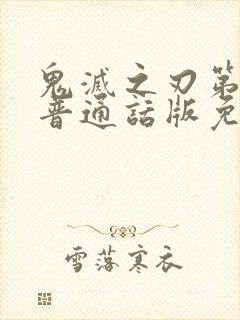 鬼滅之刃第
普通話版免
雪落寒衣